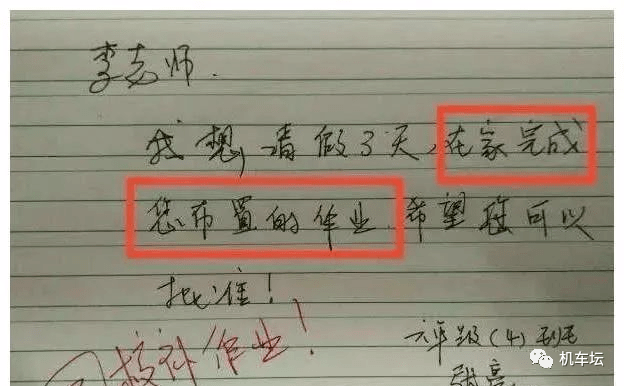 李老师.
我想,请假3天,在家完成
您布置的作业.希望您可以
批准!
回校补作业!
六年级(4)班
张亮
机车坛